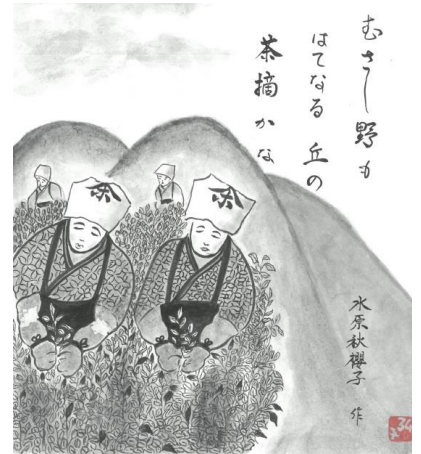 むさし野も
はてなる 丘の
茶摘かな
水原秋櫻子 作
茶
茶